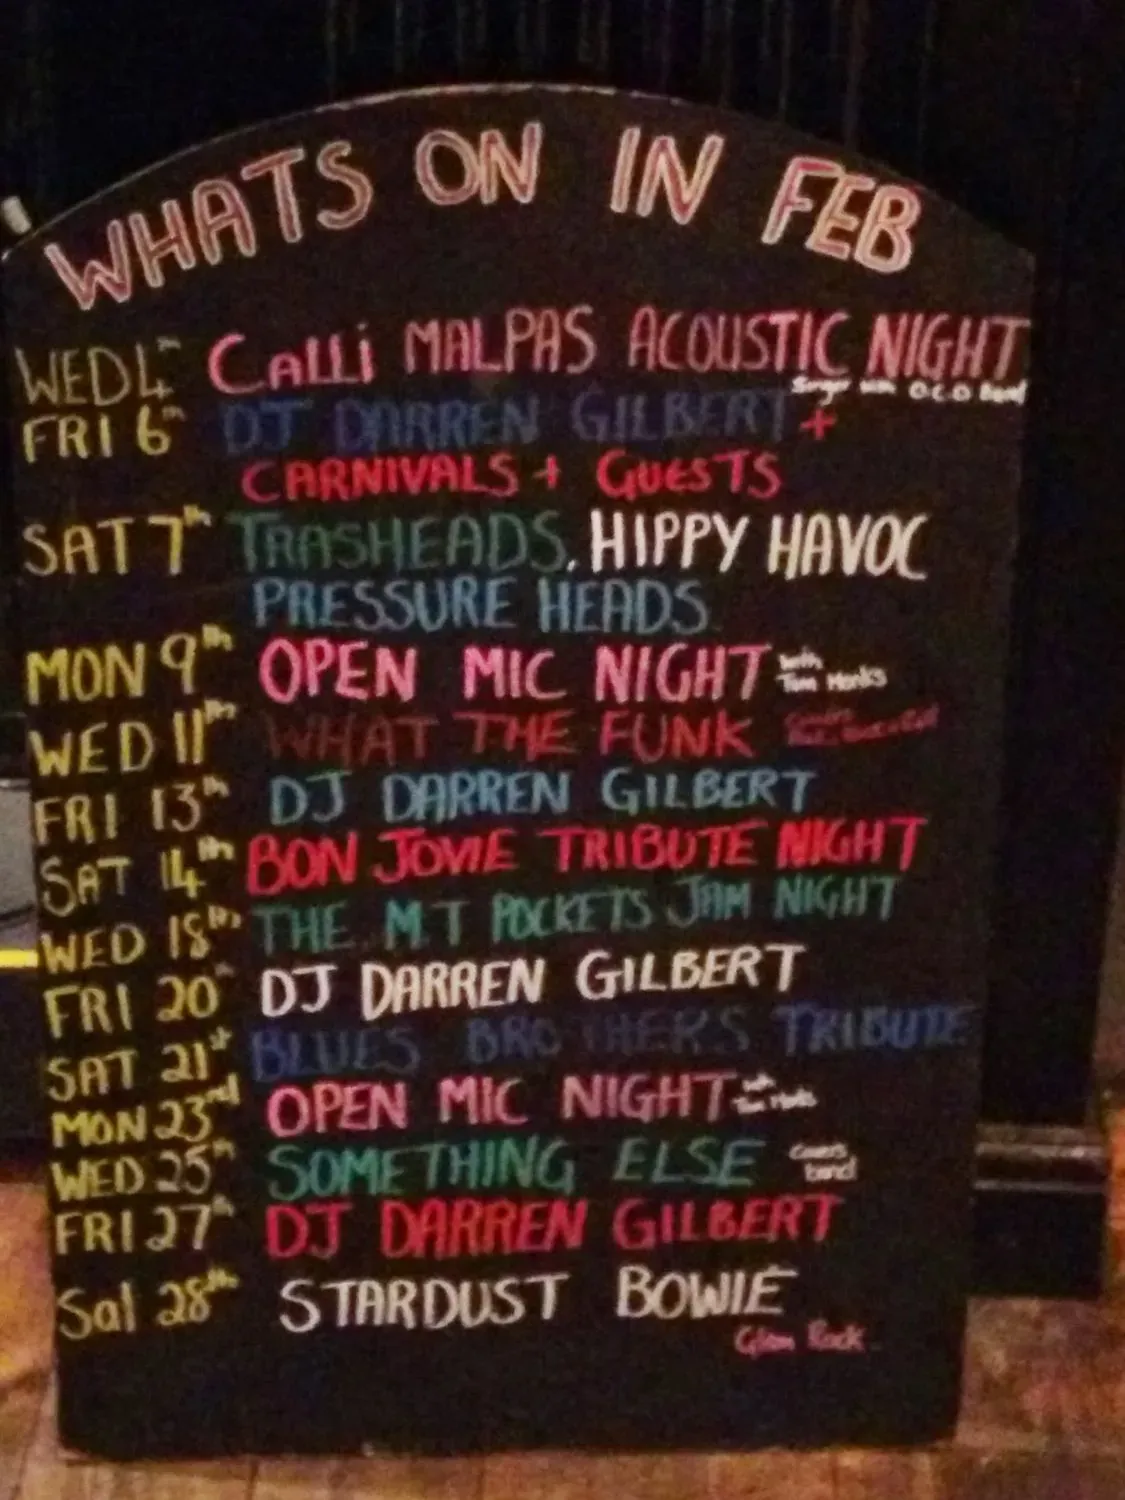 WHATS ON IN FEB
WED 4th CALLi MALPAS ACOUSTIC NIGHT
Singer with O.C.D Band
FRI 6th DJ DARREN GILBERT +
CARNIVALS + GUESTS
SAT 7th TRASHEADS. HIPPY HAVOC
PRESSURE HEADS
MON 9th OPEN MIC NIGHT with
Tom Monks
WED 11th WHAT THE FUNK
FRI 13th DJ DARREN GILBERT
SAT 14th BON JOVIE TRIBUTE NIGHT
WED 18th THE M.T POCKETS JAM NIGHT
FRI 20th DJ DARREN GILBERT
SAT 21st BLUES BROTHERS TRIBUTE
MON 23rd OPEN MIC NIGHT with
Tom Monks
WED 25th SOMETHING ELSE covers
band
FRI 27th DJ DARREN GILBERT
Sat 28th STARDUST BOWIE
Glam Rock